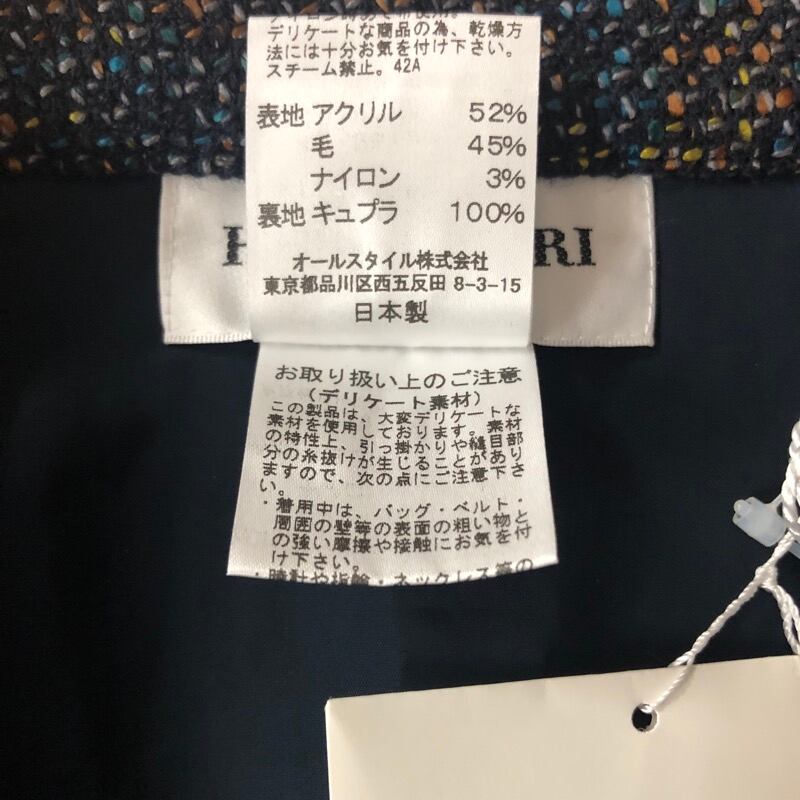 デリケートな商品の為、乾燥方
法には十分お気を付け下さい。
スチーム禁止。42A
表地 アクリル 52%
毛 45%
ナイロン 3%
裏地 キュプラ 100%
H RI
オールスタイル株式会社
東京都品川区西五反田 8-3-15
日本製
お取り扱い上のご注意
(デリケート素材)
この製品は、大変デリケートな
素材を使用しております。素材
の特性上、引っ掛かりや縫目部
分の糸抜けが生じることがあり
ますので、次の点にご注意下さ
い。
・着用中は、バッグ・ベルト・
周囲の壁等の表面の粗い物と
の強い摩擦や接触にお気を付
け下さい。
・時計や指輪・ネックレス等の